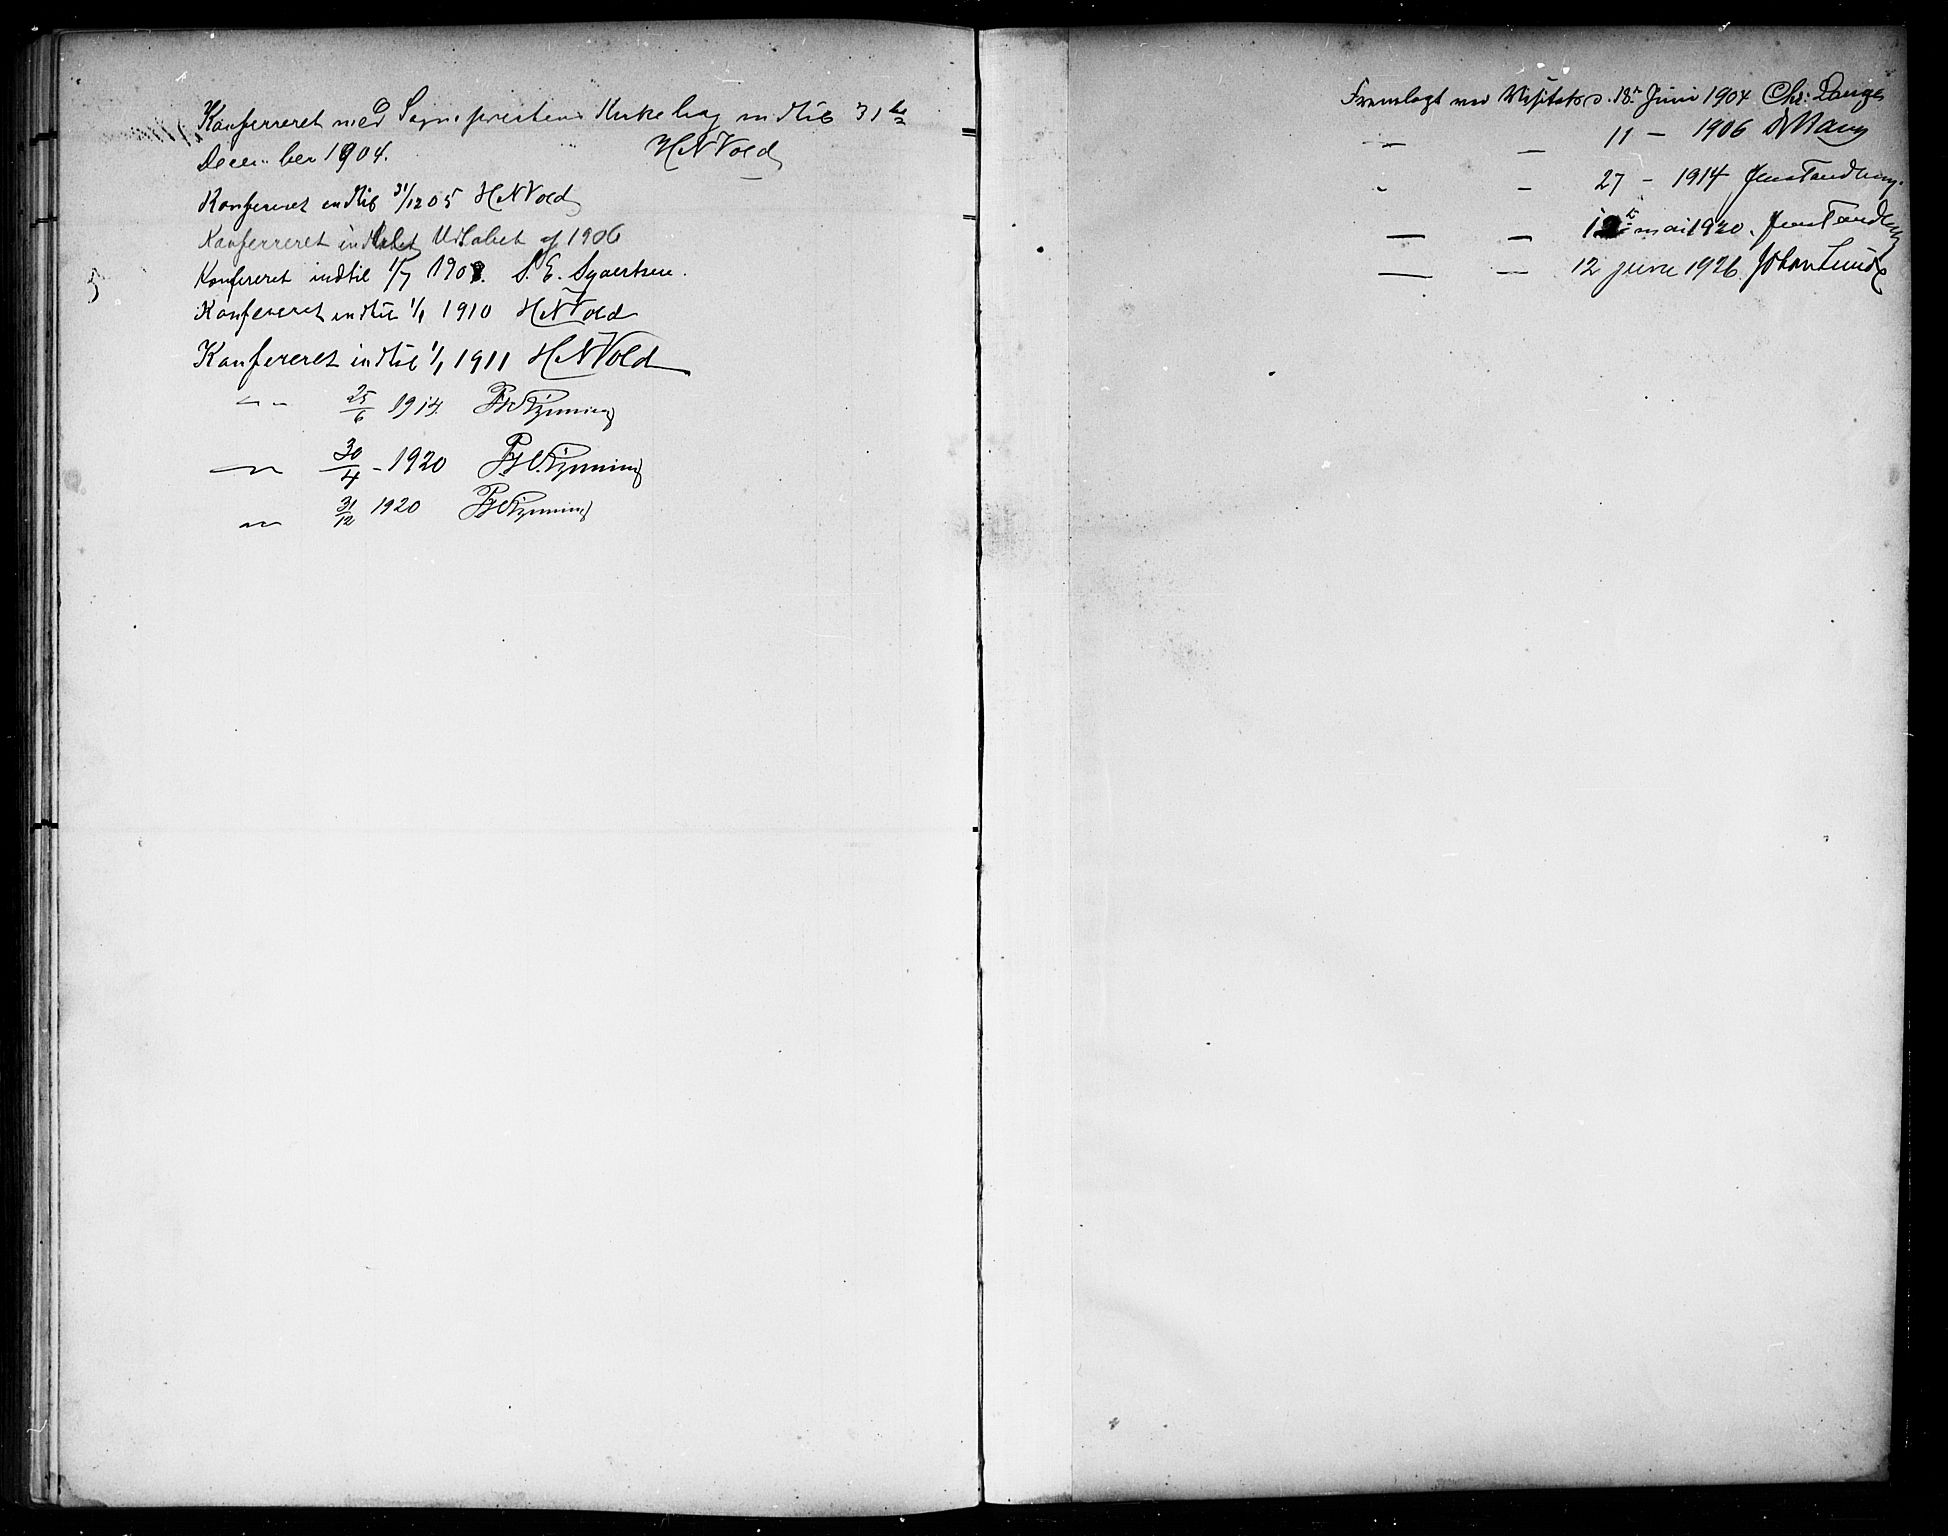 Konferreret med Sognepræstens Kirkebog indtil 31te
December 1904. H N Vold
Konfereret indtil 31/12 05 H N Vold
Konferreret indtil Udløbet af 1906
Konfereret indtil 1/7 1908. S. E.
5
Konfereret indtil 1/1 1910 H N Vold
Konfereret indtil 1/1 1911 H N Vold
—"— 25/6 1914
—"— 30/4 - 1920
—"— 31/12 1920
Fremlagt ved Visitats d. 18. Juni 1904 Chr. Lange
— — 11 — 1906
" — 27 — 1914 Jens Tandberg.
— — 12te mai 1920. Jens Tandberg
— — 12 june 1926. Johan Lunde